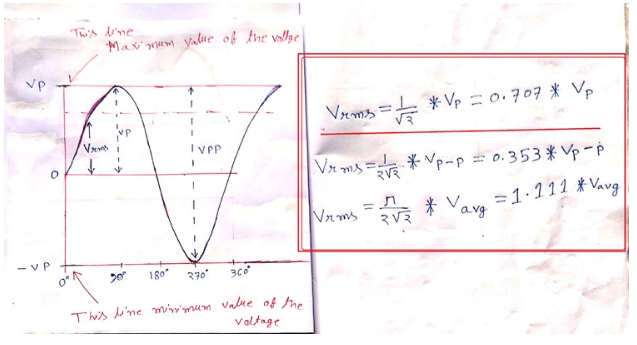 This line
Maximum value of the voltge
Vp
Vrms
Vp
VPP
0
-VP
0° 90° 180° 270° 360°
This line minimum value of the
voltage
Vrms = 1/√2 * Vp = 0.707 * Vp
Vrms = 1/2√2 * Vp-p = 0.353 * Vp-p
Vrms = π/2√2 * Vavg = 1.111 * Vavg